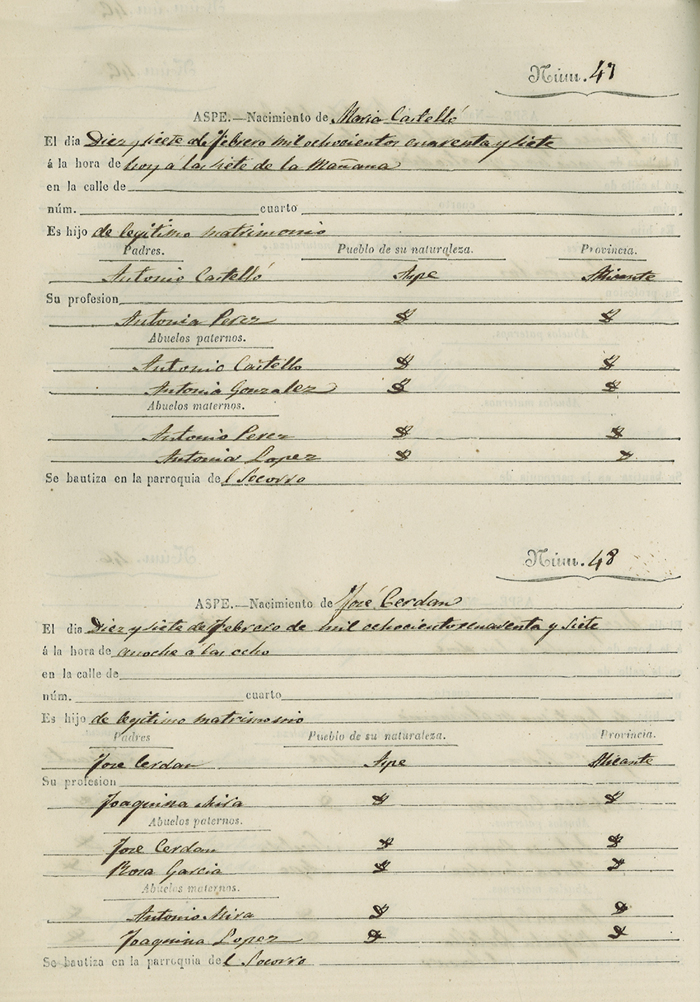 Núm. 47
ASPE.—Nacimiento de Maria Castelló
El dia Diez y siete de febrero mil ochocientos cuarenta y siete
á la hora de hoy a las siete de la Mañana
en la calle de
núm. cuarto
Es hijo de legitimo matrimonio
Padres. Pueblo de su naturaleza. Provincia.
Antonio Castelló Aspe Alicante
Su profesion
Antonia Perez
Abuelos paternos.
Antonio Castello
Antonia Gonzalez
Abuelos maternos.
Antonio Perez
Antonia Lopez
Se bautiza en la parroquia de l Socorro
Núm. 48
ASPE.—Nacimiento de José Cerdan
El dia Diez y siete de febrero de mil ochocientos cuarenta y siete
á la hora de anoche á las ocho
en la calle de
núm. cuarto
Es hijo de legitimo matrimonio
Padres Pueblo de su naturaleza. Provincia.
Jose Cerdan Aspe Alicante
Su profesion
Joaquina Mira
Abuelos paternos.
Jose Cerdan
Rosa Garcia
Abuelos maternos.
Antonio Mira
Joaquina Lopez
Se bautiza en la parroquia de l Socorro